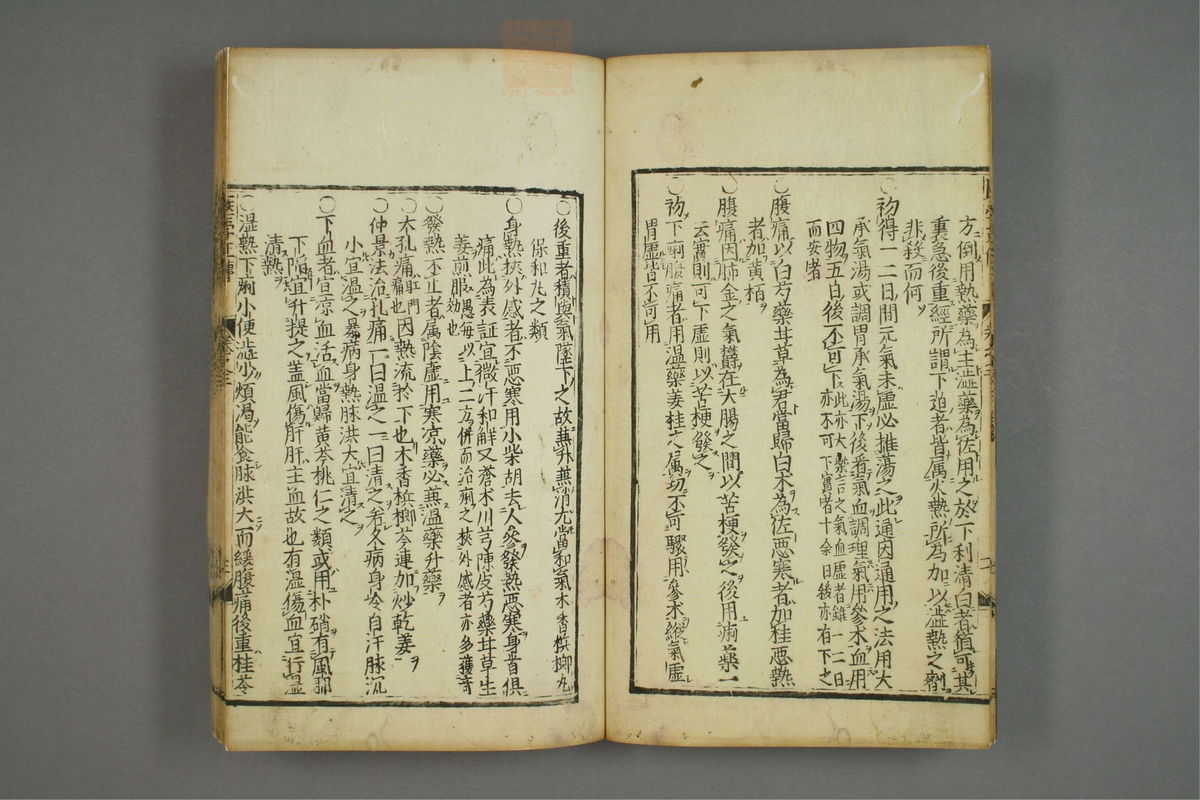 方倒用熱藥為主澁藥為佐用之於下利清白者猶可其
裏急後重經所謂下迫者皆属火熱所為加以澁熱之劑
非殺而何
○初得一二日間元氣未虚必推蕩之此通因通用之法用大
承氣湯或調胃承氣湯下後看氣血調理氣用參朮血用
四物五日後不可下此亦大槩言之氣血虚者雖一二日
亦不可下實者十余日後亦有下之
而安者
○腹痛以白芍藥甘草為君當歸白朮為佐悪寒者加桂悪熱
者加黄栢
○腹痛因肺金之氣欝在大腸之間以苦梗發之後用痢藥一
云實則可下虚則以苦梗發之
○初下痢腹痛者用温藥姜桂之属切不可驟用參朮縦氣虚
胃虚皆不可用
○後重者積與氣墜下之故兼升兼消尤當和氣木香梹榔丸
保和丸之類
○身熱挾外感者不悪寒用小柴胡去人參發熱悪寒身首俱
痛此為表証宜微汗和解又蒼朮川芎陳皮芍藥甘草生
姜煎服愚毎以上二方併而治痢之挾外感者亦多獲竒
効也
○發熱不止者属陰虚用寒凉藥必兼温藥升藥
○木孔痛肛門痛也因熱流於下也木香梹榔芩連加炒乾姜
○仲景法治孔痛一曰温之一曰清之看久病身冷自汗脉沉
小宜温之暴病身熱脉洪大宜清之
○下血者宜凉血活血當歸黄芩桃仁之類或用朴硝有風邪
下陥宜升提之盖風傷肝肝主血故也有湿傷血宜行湿
清熱
○湿熱下痢小便澁少煩渇能食脉洪大而緩腹痛後重桂苓